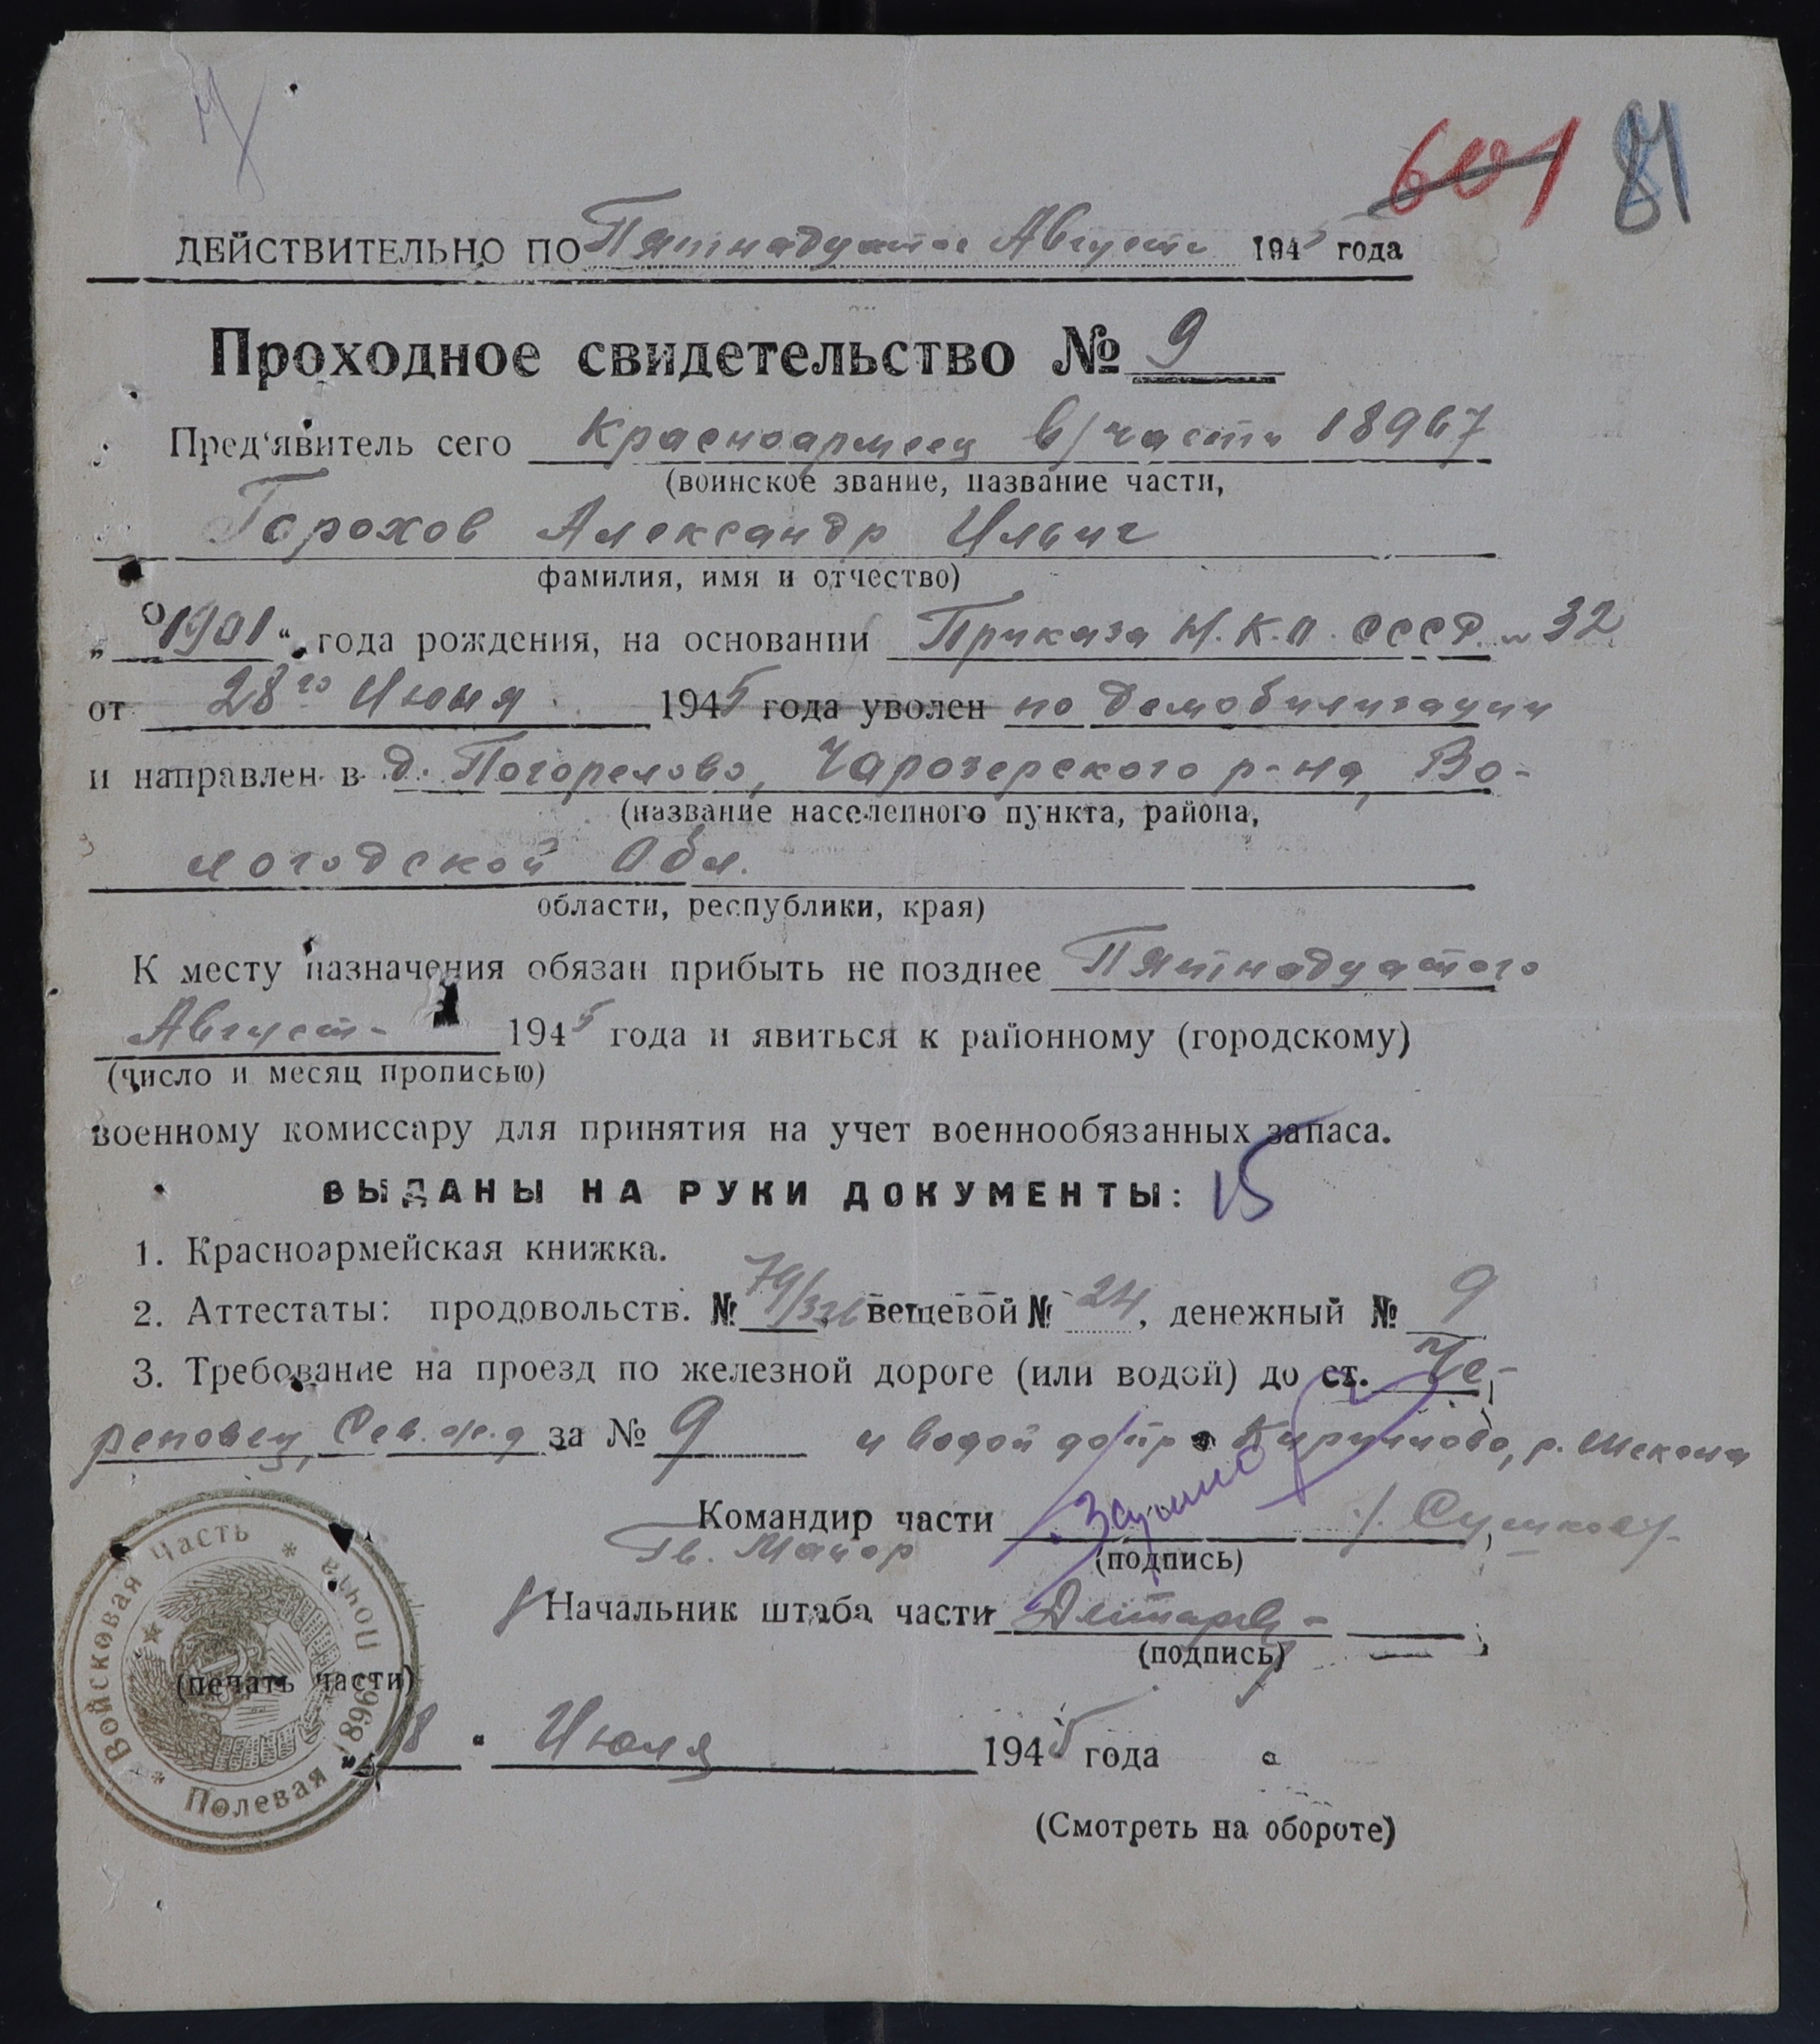 601 81
ДЕЙСТВИТЕЛЬНО ПО Пятнадцатое Августа 1945 года
Проходное свидетельство № 9
Пред'явитель сего Красноармеец в/части 18967
(воинское звание, название части,
Горохов Александр Ильич
фамилия, имя и отчество)
„1901“ года рождения, на основании Приказа Н.К.О. СССР 32
от 28го Июня 1945 года уволен по демобилизации
и направлен в д. Погорелово, Чарозерского р-на, Во-
(название населенного пункта, района,
логодской Обл.
области, республики, края)
К месту назначения обязан прибыть не позднее Пятнадцатого
Августа 1945 года и явиться к районному (городскому)
(число и месяц прописью)
военному комиссару для принятия на учет военнообязанных запаса.
ВЫДАНЫ НА РУКИ ДОКУМЕНТЫ: 15
1. Красноармейская книжка.
2. Аттестаты: продовольств. №, вещевой № 24, денежный № 9
3. Требование на проезд по железной дороге (или водой) до ст. Че-
реповец, Сев. ж.д за № 9 и водой до пр, р. Шексна
Командир части
Гв. Майор
(подпись)
Начальник штаба части
(подпись)
Войсковая часть * Полевая почта 18967 *
(печать части)
„18“ Июля 1945 года
(Смотреть на обороте)